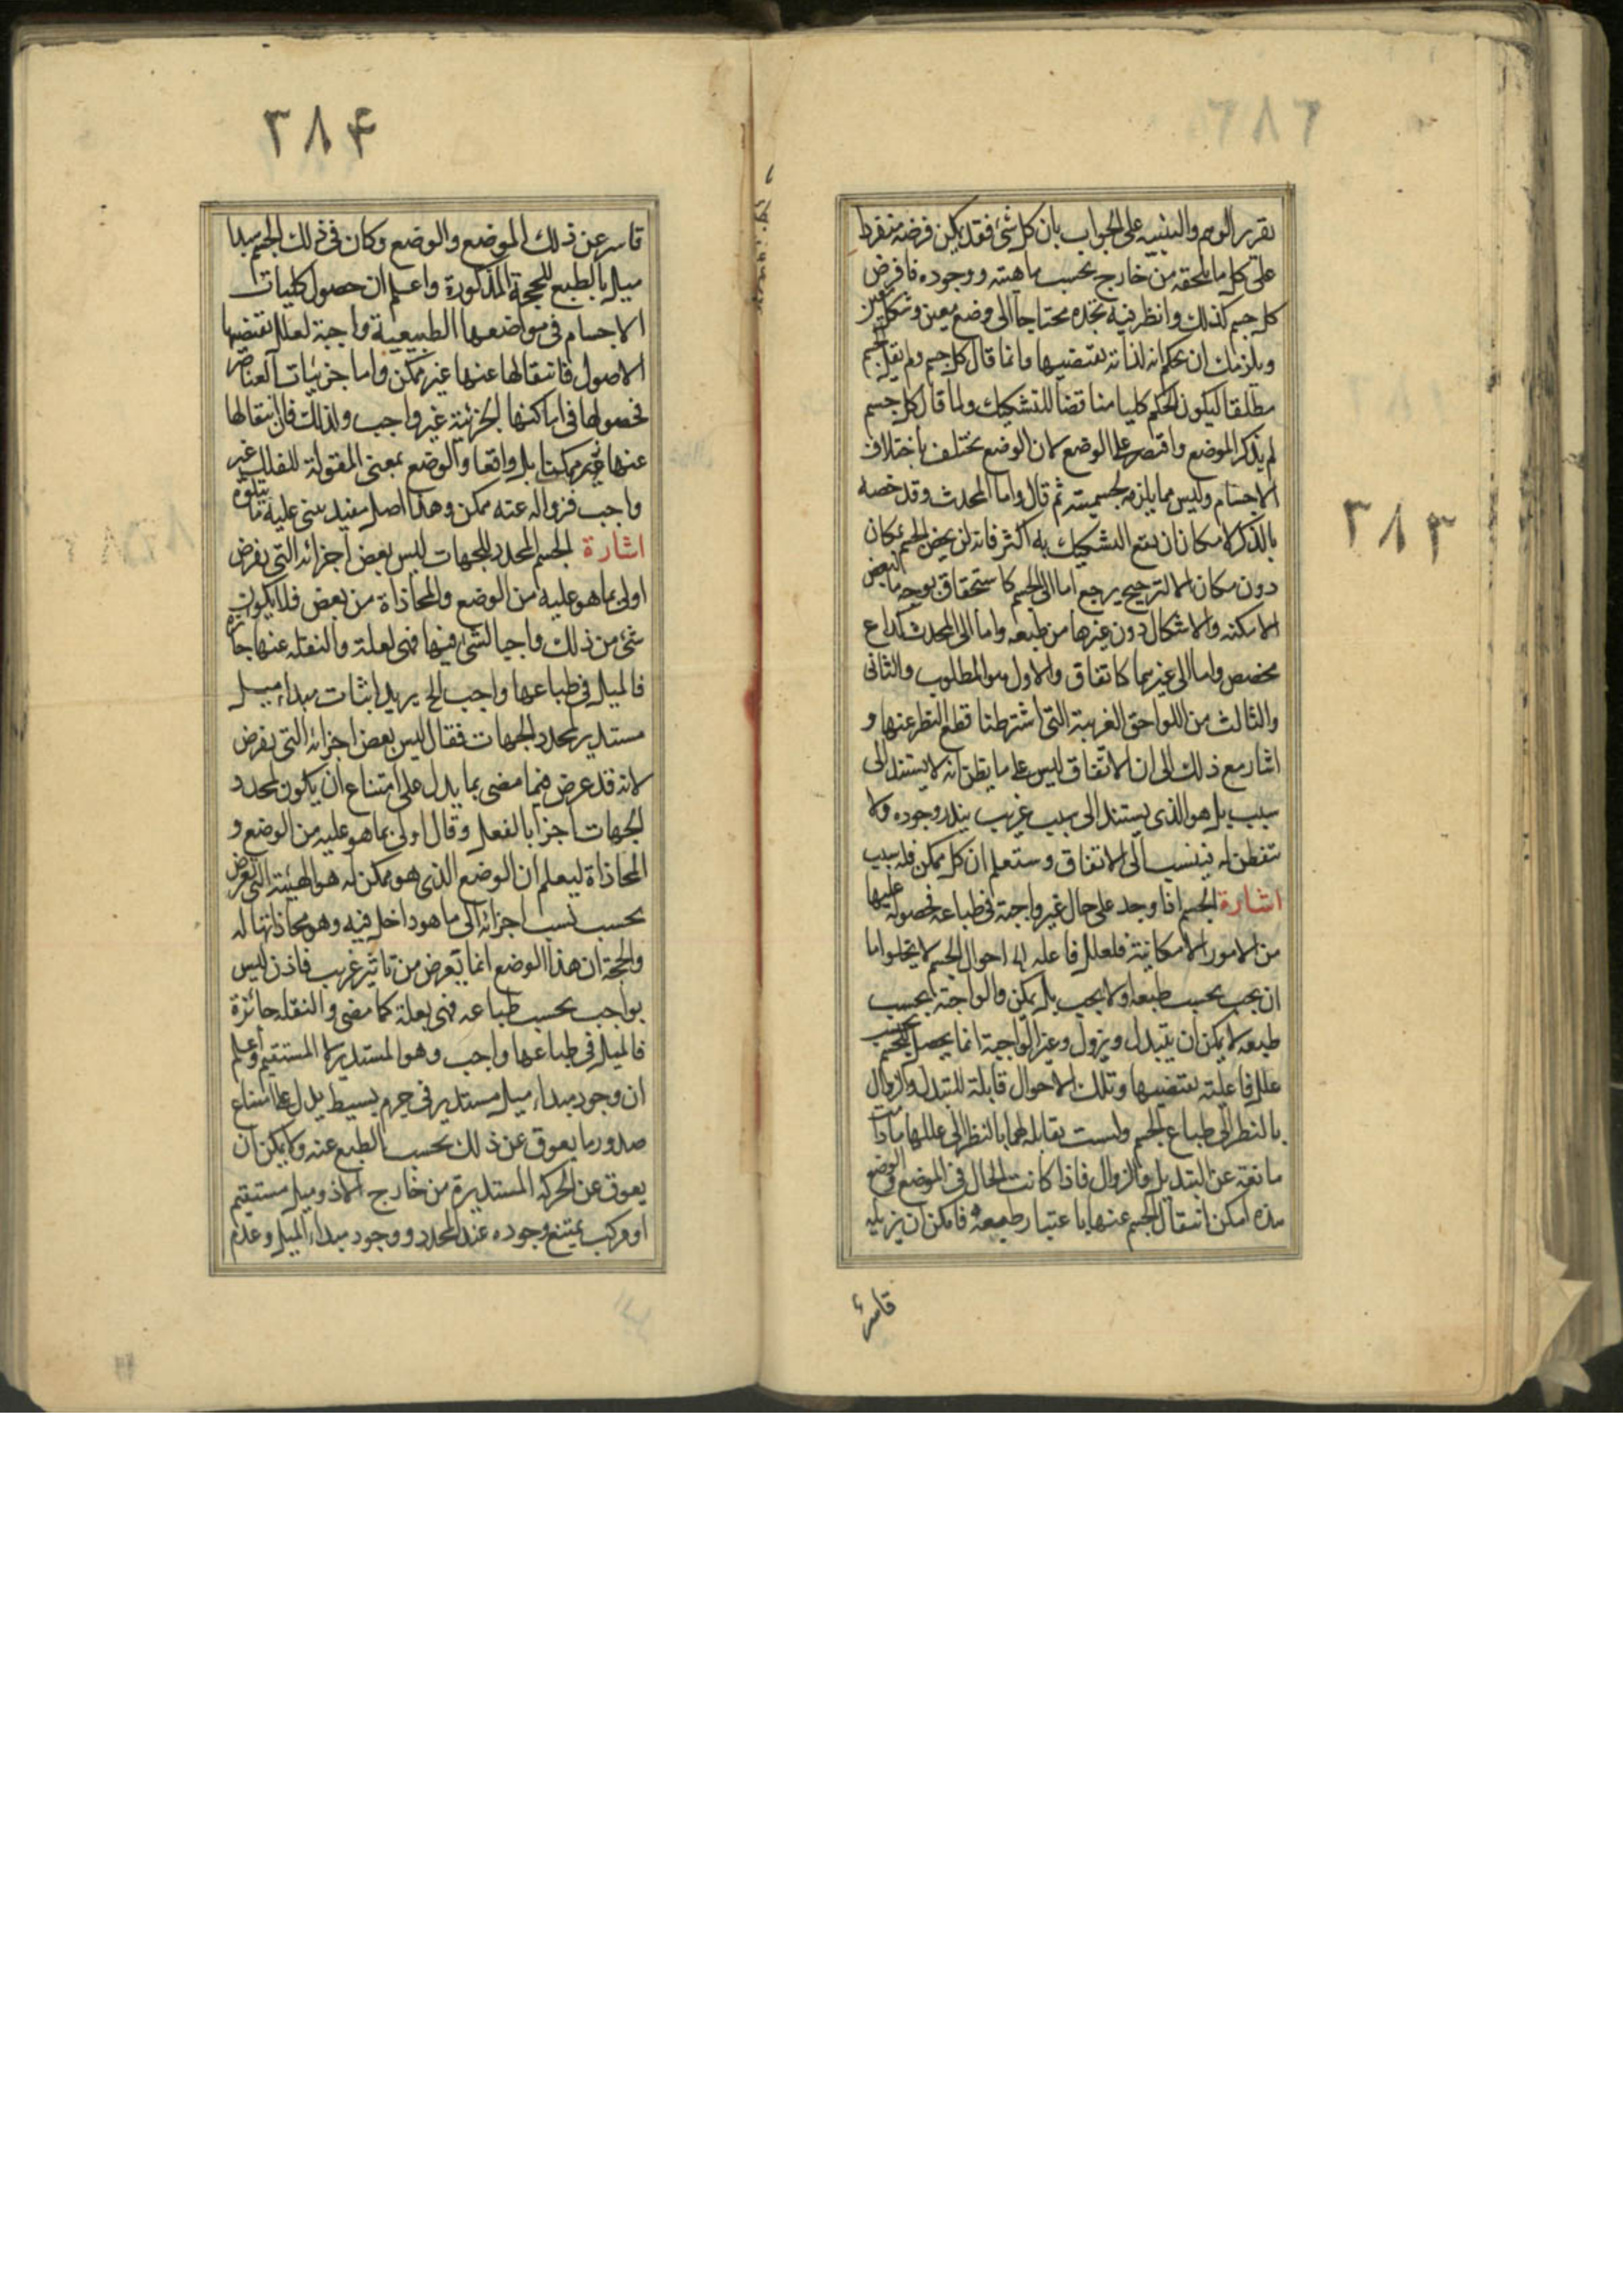 ٣٨٣
تقرير الوهم والتنبيه على الجواب بان كل شئ فقد يمكن فرضه منفردا
على كل ما يلحقه من خارج بحسب ماهيته ووجوده فافرض
كل جسم كذلك وانظر فيه تجده محتاجا الى وضع معين وشكل معين
ويلزمك ان تحكم انه لذاته يقتضيها وانما قال كل جسم ولم يقل الجسم
مطلقا ليكون الحكم كليا مناقضا للتشكيك ولما قال كل جسم
لم يذكر الموضع واقتصر على الوضع لان الوضع يختلف باختلاف
الاجسام وليس مما يلزمه لجسميته ثم قال واما المحدث وقد خصه
بالذكر لامكان ان يقع التشكيك به اكثر فانه لن يخص الجسم بمكان
دون مكان الا لترجيح يرجع اما الى الجسم كاستحقاق بوجه ما لبعض
الامكنة والاشكال دون غيرها من طبعه واما الى المحدث كداع
مخصص واما الى غيرهما كاتفاق والاول هو المطلوب والثانى
والثالث من اللواحق الغريبة التى اشترطنا قطع النظر عنها و
اشار مع ذلك الى ان الاتفاق ليس على ما يظن انه لا يستند الى
سبب بل هو الذى يستند الى سبب غريب يندر وجوده ولا
يتفطن له فينسب الى الاتفاق وستعلم ان كل ممكن فله سبب
اشارة الجسم اذا وجد على حال غير واجبة فى طباعه فحصوله عليها
من الامور الامكانية فلعلل فاعله احوال الجسم لا يخلوا اما
ان يجب بحسب طبعه ولا يجب بل يمكن والواجبة بحسب
طبعه لا يمكن ان يتبدل ويزول وغير الواجبة انما يحصل للجسم بحسب
علل فاعلية يقتضيها وتلك الاحوال قابلة للتبدل والزوال
بالنظر الى طباع الجسم وليست بقابله لهما بالنظر الى عللها مادامت
مانعة عن التبديل والزوال فاذا كانت الحال فى الموضع والوضع
هذه امكن انتقال الجسم عنها باعتبار طبعه فامكن ان يزيله
قاسر
٣٨۴
قاسر عن ذلك الموضع والوضع وكان فى ذلك الجسم مبدا
ميل بالطبع للحجة المذكورة واعلم ان حصول كليات
الاجسام فى مواضعها الطبيعية واجبة لعلل تقتضيها
الاصول فانتقالها عنها غير ممكن واما جزئيات العناصر
فحصولها فى اماكنها الجزئية غير واجب ولذلك فان انتقالها
عنها غير ممكنا بل واقعا والوضع بمعنى المقولة للفلك غير
واجب فزواله عنه ممكن وهذا اصل مفيد يبنى عليه ما يتلوه
اشارة الجسم المحدد للجهات ليس بعض اجزائه التى يفرض
اولى بما هو عليه من الوضع والمحاذاة من بعض فلا يكون
شئ من ذلك واجبا لشئ فيها فهى لعلة والنقلة عنها جائزة
فالميل فى طباعها واجب الخ يريد اثبات مبداء ميل
مستدير لمحدد الجهات فقال ليس بعض اجزائه التى يفرض
لانه قد عرض فيما مضى بما يدل على امتناع ان يكون لمحدد
الجهات اجزا بالفعل وقال اولى بما هو عليه من الوضع و
المحاذاة ليعلم ان الوضع الذى هو ممكن له هو الهيئة التى تعرض
بحسب نسب اجزائه الى ما هو داخل فيه وهو محاذاتها له
والحجة ان هذا الوضع انما تعرض من تاثير غريب فاذن ليس
بواجب بحسب طباعه فهى بعلة كما مضى والنقلة جائزة
فالميل فى طباعها واجب وهو المستدير لا المستقيم واعلم
ان وجود مبداء ميل مستدير فى جرم بسيط يدل على امتناع
صدور ما يعوق عن ذلك بحسب الطبع عنه ولا يمكن ان
يعوق عن الحركة المستديرة من خارج الا ذو ميل مستقيم
او مركب يمتنع وجوده عند المحدد ووجود مبداء الميل وعدم